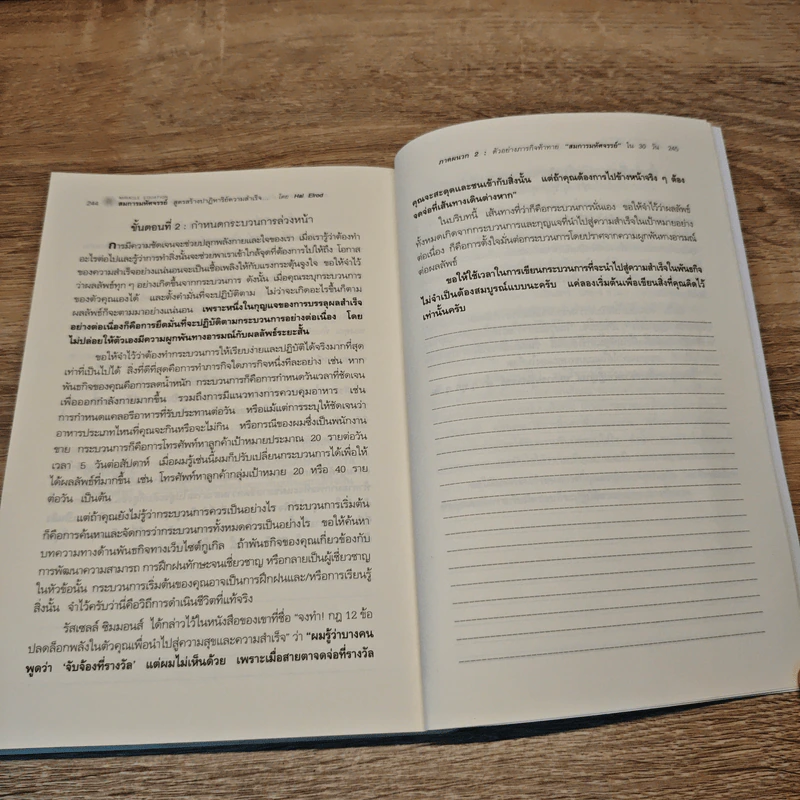 244 สมการมหัศจรรย์ สูตรสร้างปาฏิหาริย์ความสำเร็จ... โดย Hal Elrod
ขั้นตอนที่ 2 : กำหนดกระบวนการล่วงหน้า
การมีความชัดเจนจะช่วยปลุกพลังกายและใจของเรา เมื่อเรารู้ว่าต้องทำ
อะไรต่อไปและการทำสิ่งนั้นจะช่วยพาเราเข้าใกล้จุดที่ต้องการไปให้ถึง โอกาส
ของความสำเร็จอย่างแน่นอนจะเป็นเชื้อเพลิงให้กับแรงกระตุ้นจูงใจ ขอให้จำไว้
ว่าผลลัพธ์ทุก ๆ อย่างเกิดขึ้นจากกระบวนการ ดังนั้น เมื่อคุณระบุกระบวนการ
ของตัวคุณเองได้ และตั้งคำมั่นที่จะปฏิบัติตาม ไม่ว่าจะเกิดอะไรขึ้นก็ตาม
ผลลัพธ์ก็จะตามมาอย่างแน่นอน เพราะหนึ่งในกุญแจของการบรรลุผลสำเร็จ
อย่างต่อเนื่องก็คือการยึดมั่นที่จะปฏิบัติตามกระบวนการอย่างต่อเนื่อง โดย
ไม่ปล่อยให้ตัวเองมีความผูกพันทางอารมณ์กับผลลัพธ์ระยะสั้น
ขอให้จำไว้ว่าต้องทำกระบวนการให้เรียบง่ายและปฏิบัติได้จริงมากที่สุด
เท่าที่เป็นไปได้ สิ่งที่ดีที่สุดคือการทำภารกิจใดภารกิจหนึ่งทีละอย่าง เช่น หาก
พันธกิจของคุณคือการลดน้ำหนัก กระบวนการก็คือการกำหนดวันเวลาที่ชัดเจน
เพื่อออกกำลังกายมากขึ้น รวมถึงการมีแนวทางการควบคุมอาหาร เช่น
การกำหนดแคลอรีอาหารที่รับประทานต่อวัน หรือแม้แต่การระบุให้ชัดเจนว่า
อาหารประเภทไหนที่คุณจะกินหรือจะไม่กิน หรือกรณีของผมซึ่งเป็นพนักงาน
ขาย กระบวนการก็คือการโทรศัพท์หาลูกค้าเป้าหมายประมาณ 20 รายต่อวัน
เวลา 5 วันต่อสัปดาห์ เมื่อผมรู้เช่นนี้ผมก็ปรับเปลี่ยนกระบวนการได้เพื่อให้
ได้ผลลัพธ์ที่มากขึ้น เช่น โทรศัพท์หาลูกค้ากลุ่มเป้าหมาย 20 หรือ 40 ราย
ต่อวัน เป็นต้น
แต่ถ้าคุณยังไม่รู้ว่ากระบวนการควรเป็นอย่างไร กระบวนการเริ่มต้น
ก็คือการค้นหาและจัดการว่ากระบวนการทั้งหมดควรเป็นอย่างไร ขอให้ค้นหา
บทความทางด้านพันธกิจทางเว็บไซต์กูเกิล ถ้าพันธกิจของคุณเกี่ยวข้องกับ
การพัฒนาความสามารถ การฝึกฝนทักษะจนเชี่ยวชาญ หรือกลายเป็นผู้เชี่ยวชาญ
ในหัวข้อนั้น กระบวนการเริ่มต้นของคุณอาจเป็นการฝึกฝนและ/หรือการเรียนรู้
สิ่งนั้น จำไว้ครับว่านี่คือวิถีการดำเนินชีวิตที่แท้จริง
รัสเซลล์ ซิมมอนส์ ได้กล่าวไว้ในหนังสือของเขาที่ชื่อ "จงทำ! กฎ 12 ข้อ
ปลดล็อกพลังในตัวคุณเพื่อนำไปสู่ความสุขและความสำเร็จ" ว่า "ผมรู้ว่าบางคน
พูดว่า 'จับจ้องที่รางวัล' แต่ผมไม่เห็นด้วย เพราะเมื่อสายตาจดจ่อที่รางวัล
ภาคผนวก 2 : ตัวอย่างภารกิจท้าทาย "สมการมหัศจรรย์" ใน 30 วัน 245
คุณจะสะดุดและชนเข้ากับสิ่งนั้น แต่ถ้าคุณต้องการไปข้างหน้าจริง ๆ ต้อง
จดจ่อที่เส้นทางเดินต่างหาก"
ในบริบทนี้ เส้นทางที่ว่าก็คือกระบวนการนั่นเอง ขอให้จำไว้ว่าผลลัพธ์
ทั้งหมดเกิดจากกระบวนการและกุญแจที่นำไปสู่ความสำเร็จในเป้าหมายอย่าง
ต่อเนื่อง ก็คือการตั้งใจมั่นต่อกระบวนการโดยปราศจากความผูกพันทางอารมณ์
ต่อผลลัพธ์
ขอให้ใช้เวลาในการเขียนกระบวนการที่จะนำไปสู่ความสำเร็จในพันธกิจ
ไม่จำเป็นต้องสมบูรณ์แบบนะครับ แต่ลองเริ่มต้นเพื่อเรียนสิ่งที่คุณคิดไว้
เท่านั้นครับ